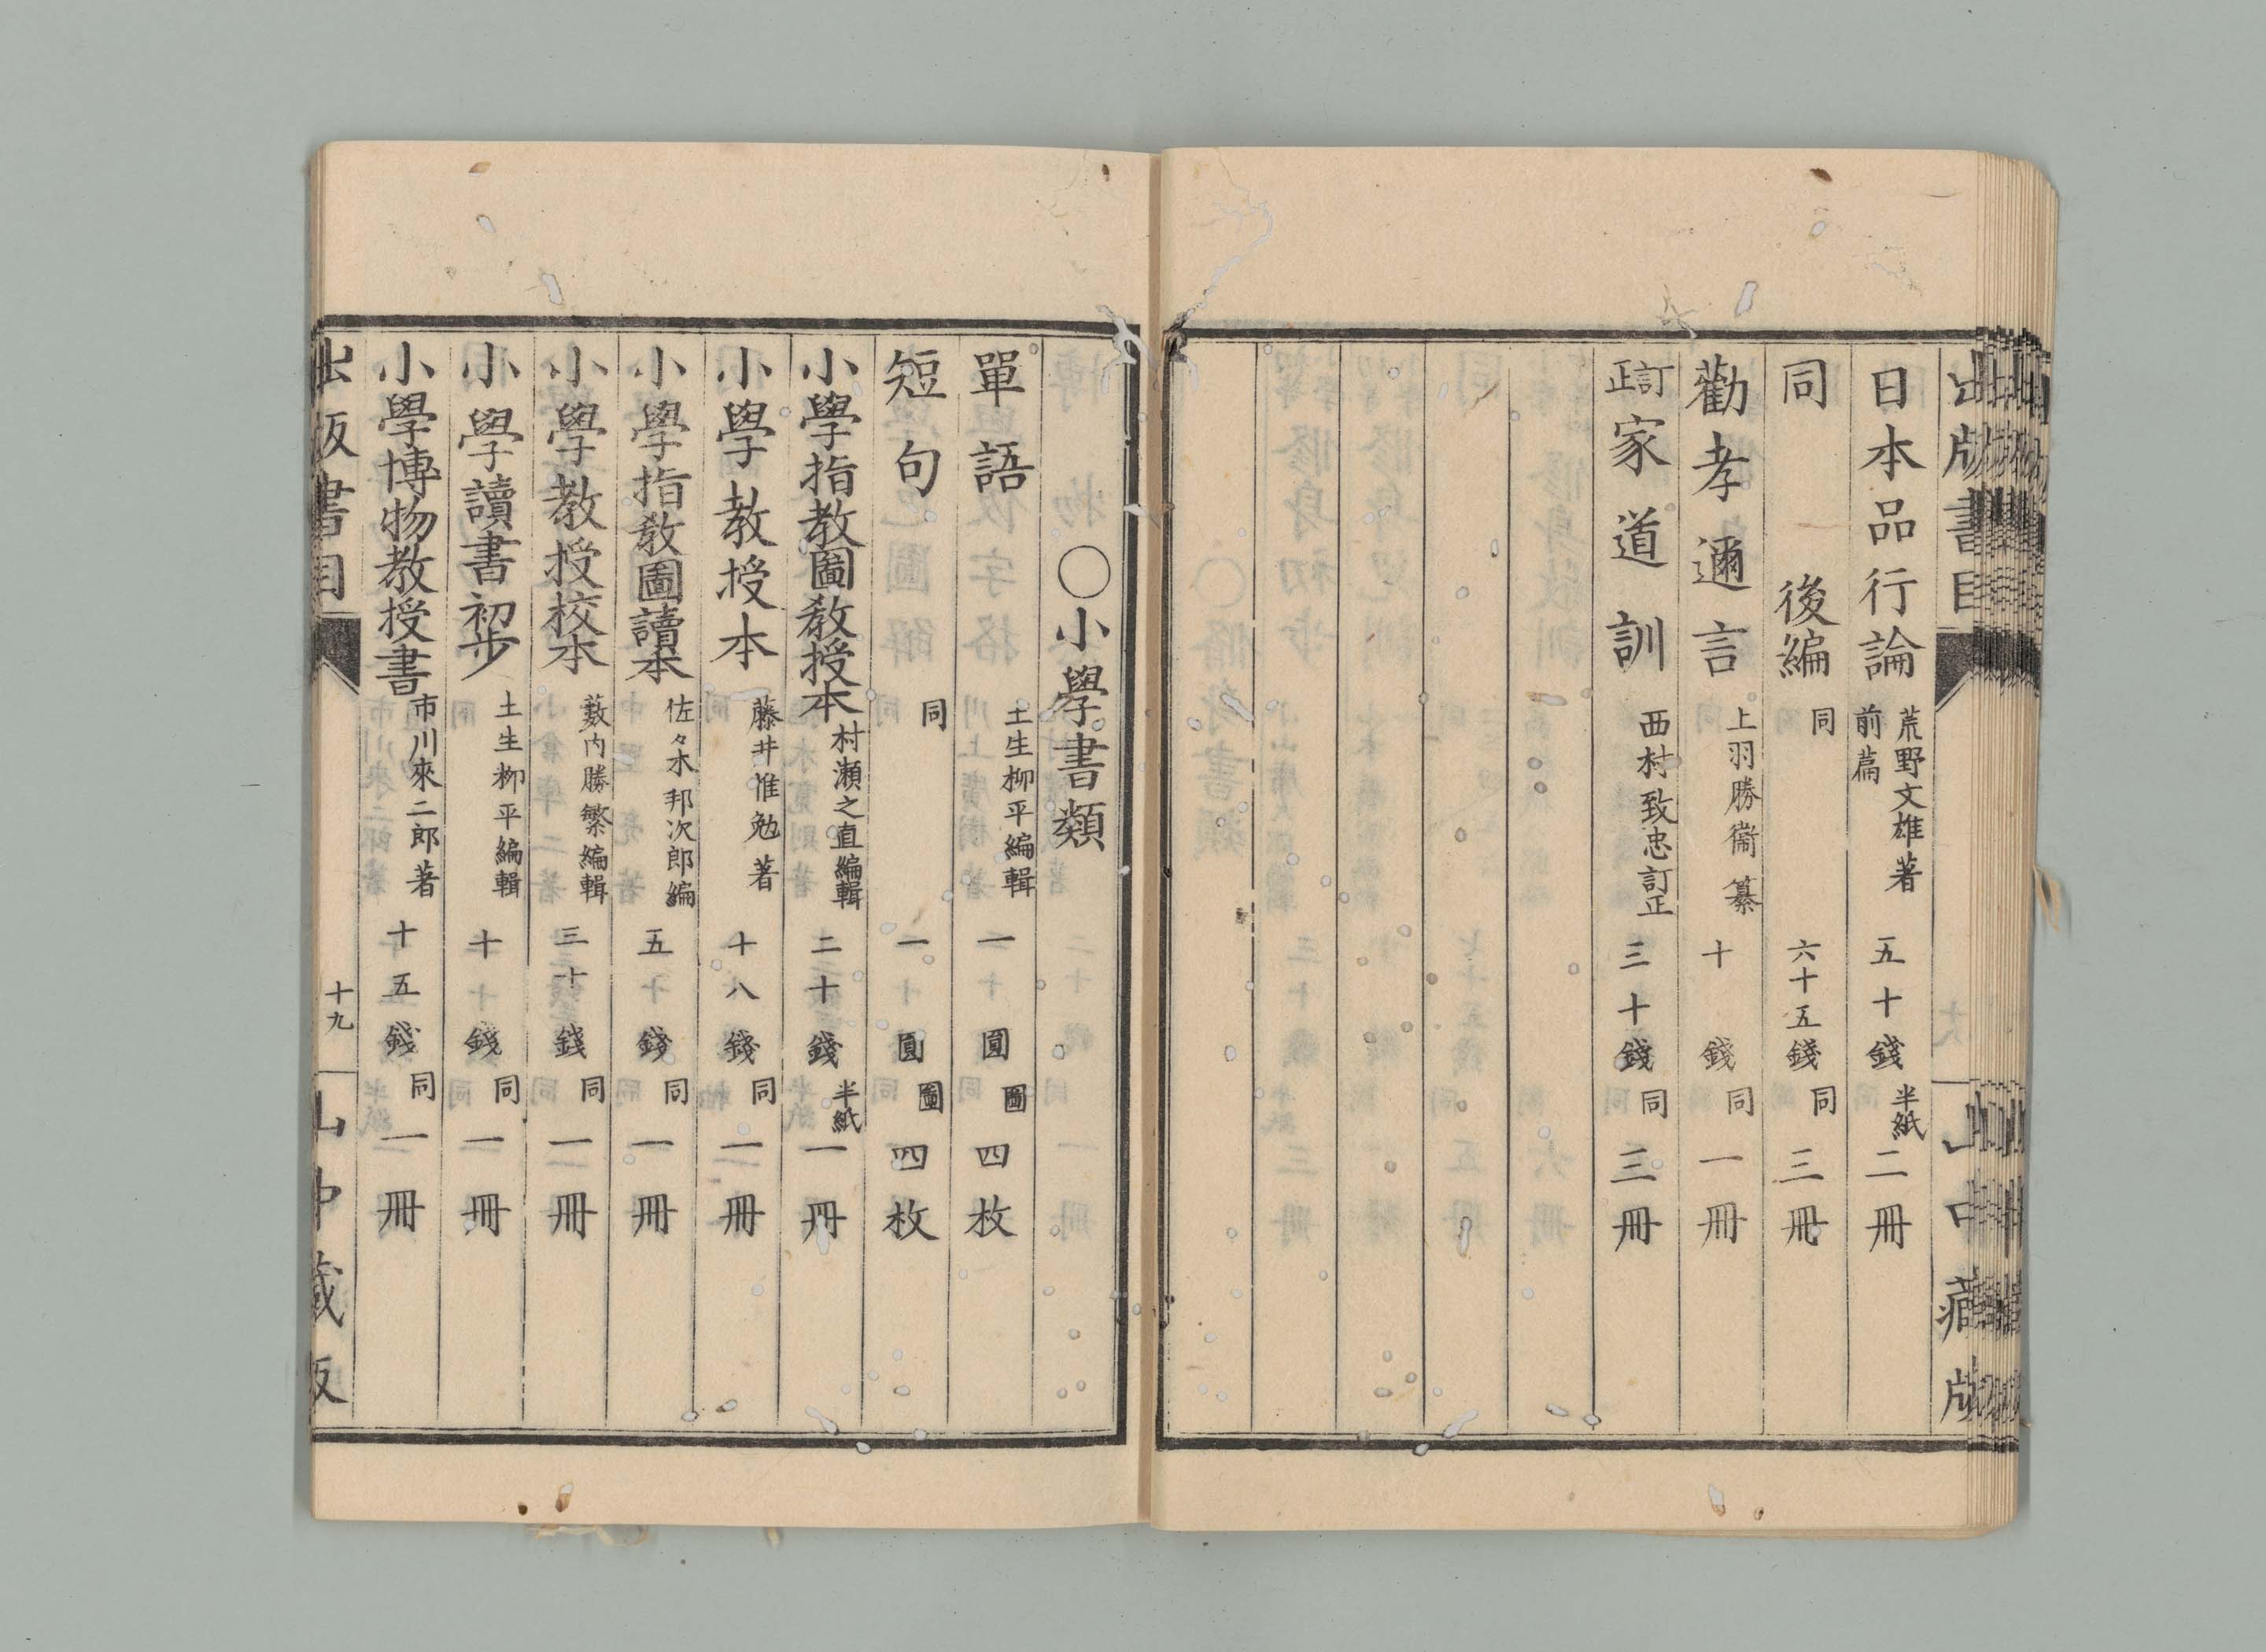 出版書目 山中藏版
日本品行論 荒野文雄著 前篇 五十錢 半紙 二冊
同 後編 同 六十五錢 同 三冊
勸孝邇言 上羽勝衞纂 十錢 同 一冊
訂正家道訓 西村致忠訂正 三十錢 同 三冊
○小學書類
單語 土生柳平編輯 一圓 圖 四枚
短句 同 一圓 圖 四枚
小學指教圖教授本 村瀬之直編輯 二十錢 半紙 一冊
小學教授本 藤井惟勉著 十八錢 同 一冊
小學指教圖讀本 佐々木邦次郎編 五錢 同 一冊
小學教授校本 藪内勝繁編輯 三十錢 同 一冊
小學讀書初步 土生柳平編輯 十錢 同 一冊
小學博物教授書 市川來二郎著 十五錢 同 一冊
出版書目 十九 山中藏版